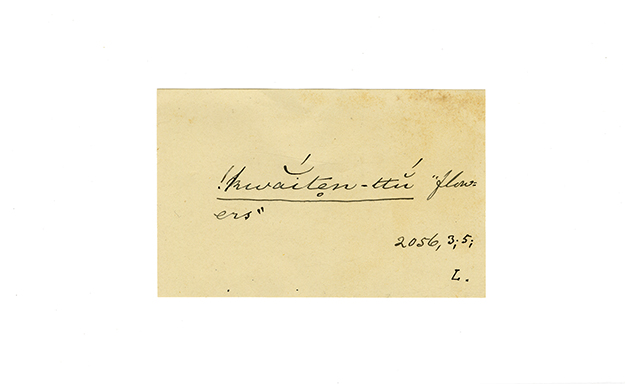 !kwắiten̥-ttú "flow=
ers"
2056, 3; 5;
L.